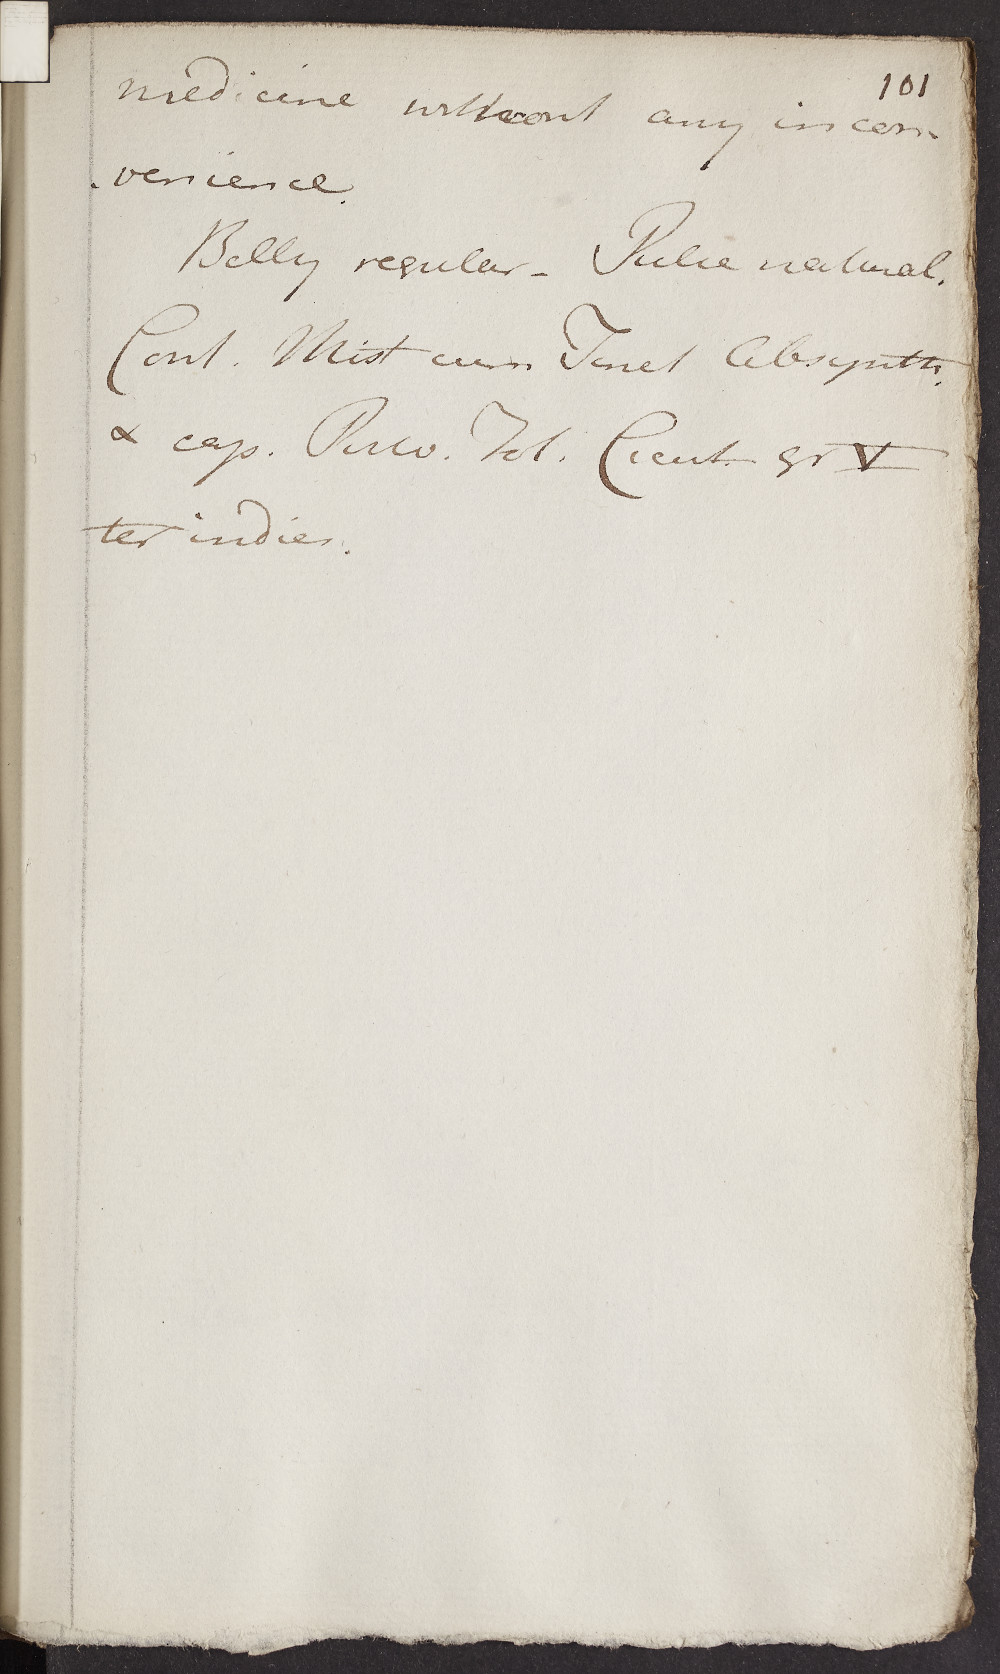 101
medicine without any incon-
-venience.
Belly regular - Pulse natural.
Cont. Mist cum Tinct Absynth.
& cap. Pulv. Fol. Cicut. gr V
ter indies.